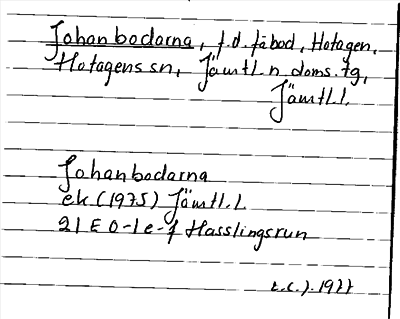 Johanbodarna, f.d. fäbod, Hotagen,
Hotagens sn, Jämtl. n. doms. tg,
Jämtl. l.
Johanbodarna
ek (1975) Jämtl. l.
21 E 0-1 e-f Hasslingsrun
1977